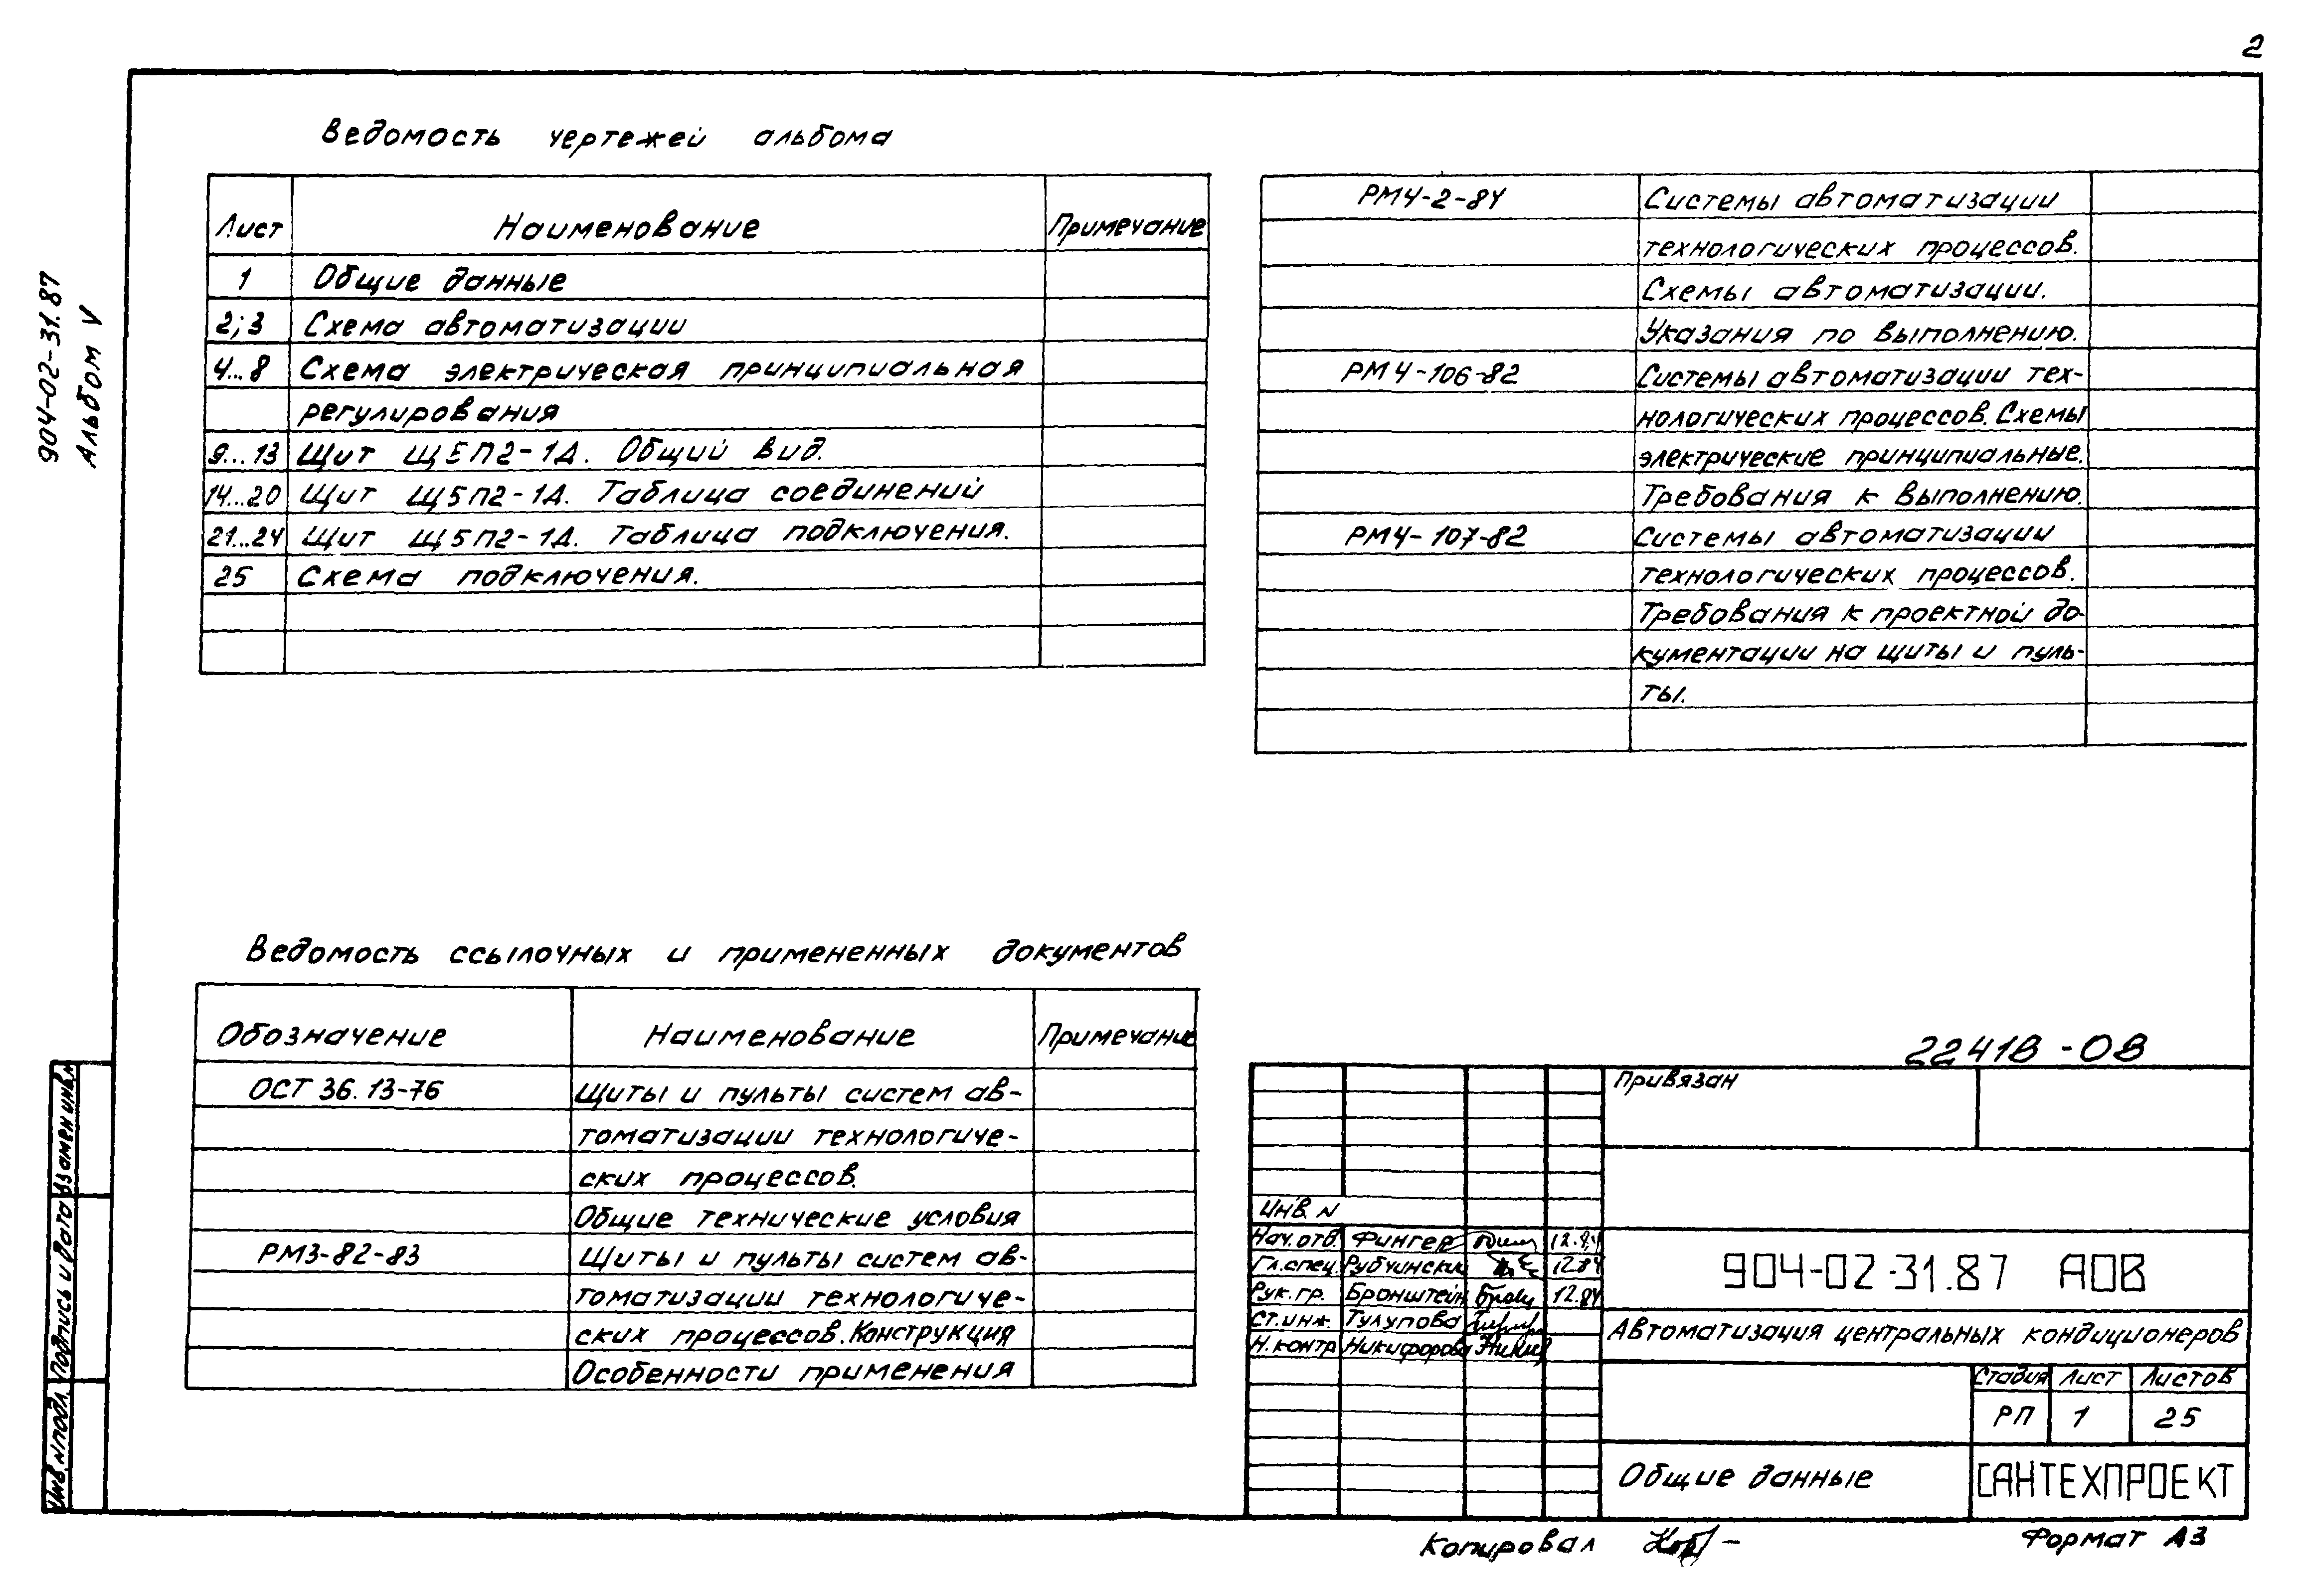 2
904-02-31.87
Альбом V
Ведомость чертежей альбома
Лист Наименование Примечание
1 Общие данные
2;3 Схема автоматизации
4...8 Схема электрическая принципиальная
регулирования
9...13 Щит Щ5П2-1Д. Общий вид.
14...20 Щит Щ5П2-1Д. Таблица соединений
21...24 Щит Щ5П2-1Д. Таблица подключения.
25 Схема подключения.
РМ4-2-84 Системы автоматизации
технологических процессов.
Схемы автоматизации.
Указания по выполнению.
РМ4-106-82 Системы автоматизации тех-
нологических процессов. Схемы
электрические принципиальные.
Требования к выполнению.
РМ4-107-82 Системы автоматизации
технологических процессов.
Требования к проектной до-
кументации на щиты и пуль-
ты.
Ведомость ссылочных и примененных документов
Обозначение Наименование Примечание
ОСТ 36.13-76 Щиты и пульты систем ав-
томатизации технологиче-
ских процессов.
Общие технические условия
РМ3-82-83 Щиты и пульты систем ав-
томатизации технологиче-
ских процессов. Конструкция
Особенности применения
22418-08
Привязан
Инв. N
Нач. отв. Фингер 12.84
Гл. спец. Рубчинский 12.84
Рук. гр. Бронштейн 12.84
Ст. инж. Тулупова
Н. контр Никифорова
904-02-31.87 АОВ
Автоматизация центральных кондиционеров
Стадия Лист Листов
РП 1 25
Общие данные
САНТЕХПРОЕКТ
Инв. N подл. Подпись и дата Взамен инв. N
Копировал
Формат А3